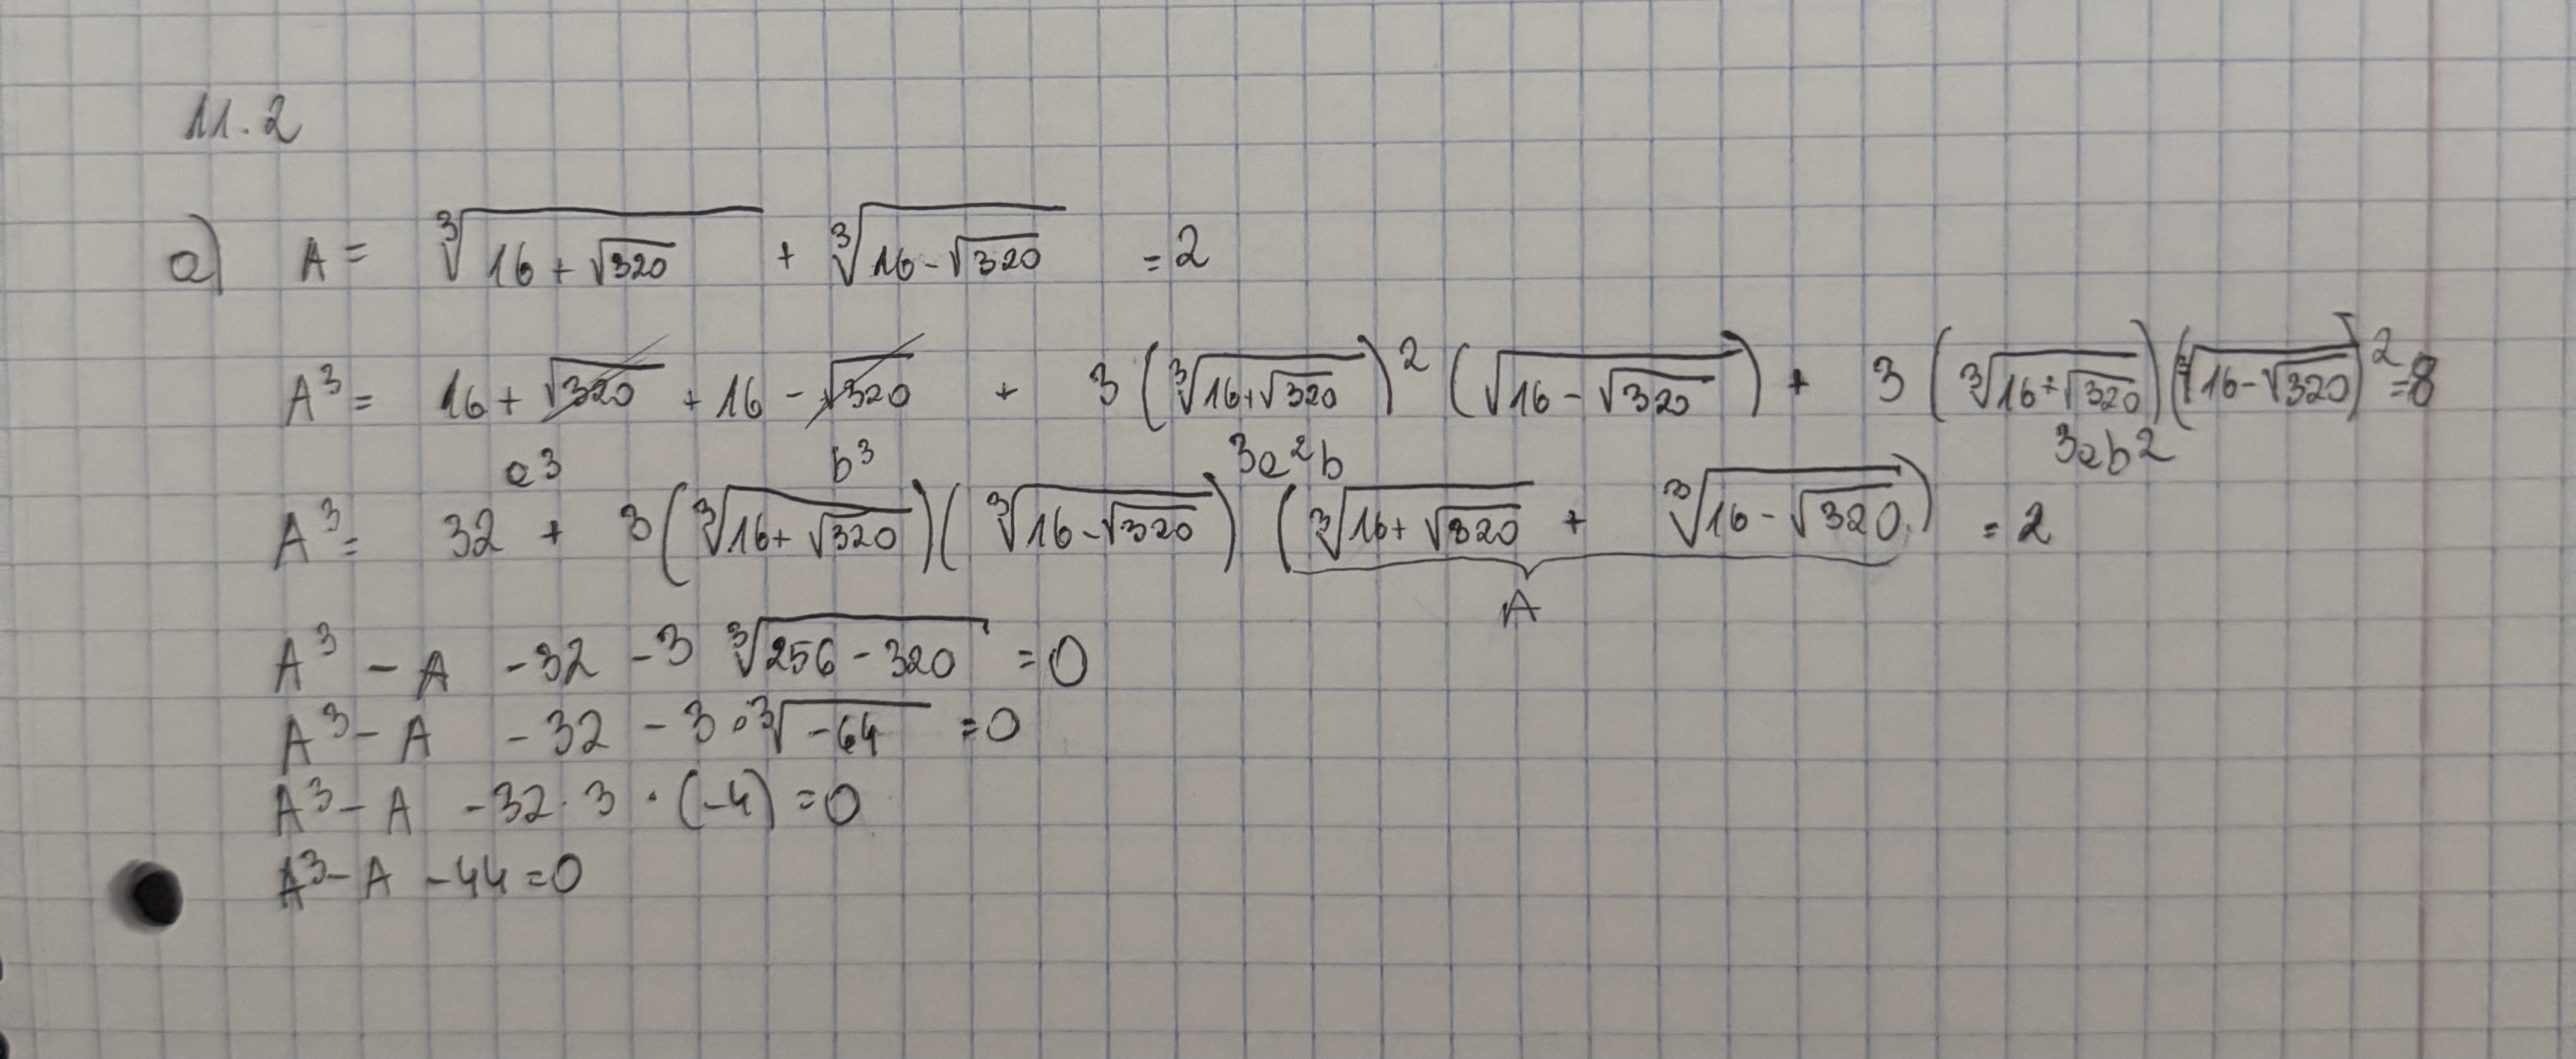 11.2
a) A = ∛(16 + √320) + ∛(16 - √320) = 2
A³ = 16 + √320 + 16 - √320 + 3 (∛(16+√320))² (√(16 - √320)) + 3 (∛(16+√320)) (∛(16-√320))² = 8
a³ b³ 3a²b 3ab²
A³ = 32 + 3 (∛(16+√320)) (∛(16-√320)) (∛(16+√320) + ∛(16-√320)) = 2
A
A³ - A - 32 - 3 ∛(256 - 320) = 0
A³ - A - 32 - 3 · ∛(-64) = 0
A³ - A - 32 · 3 · (-4) = 0
A³ - A - 44 = 0